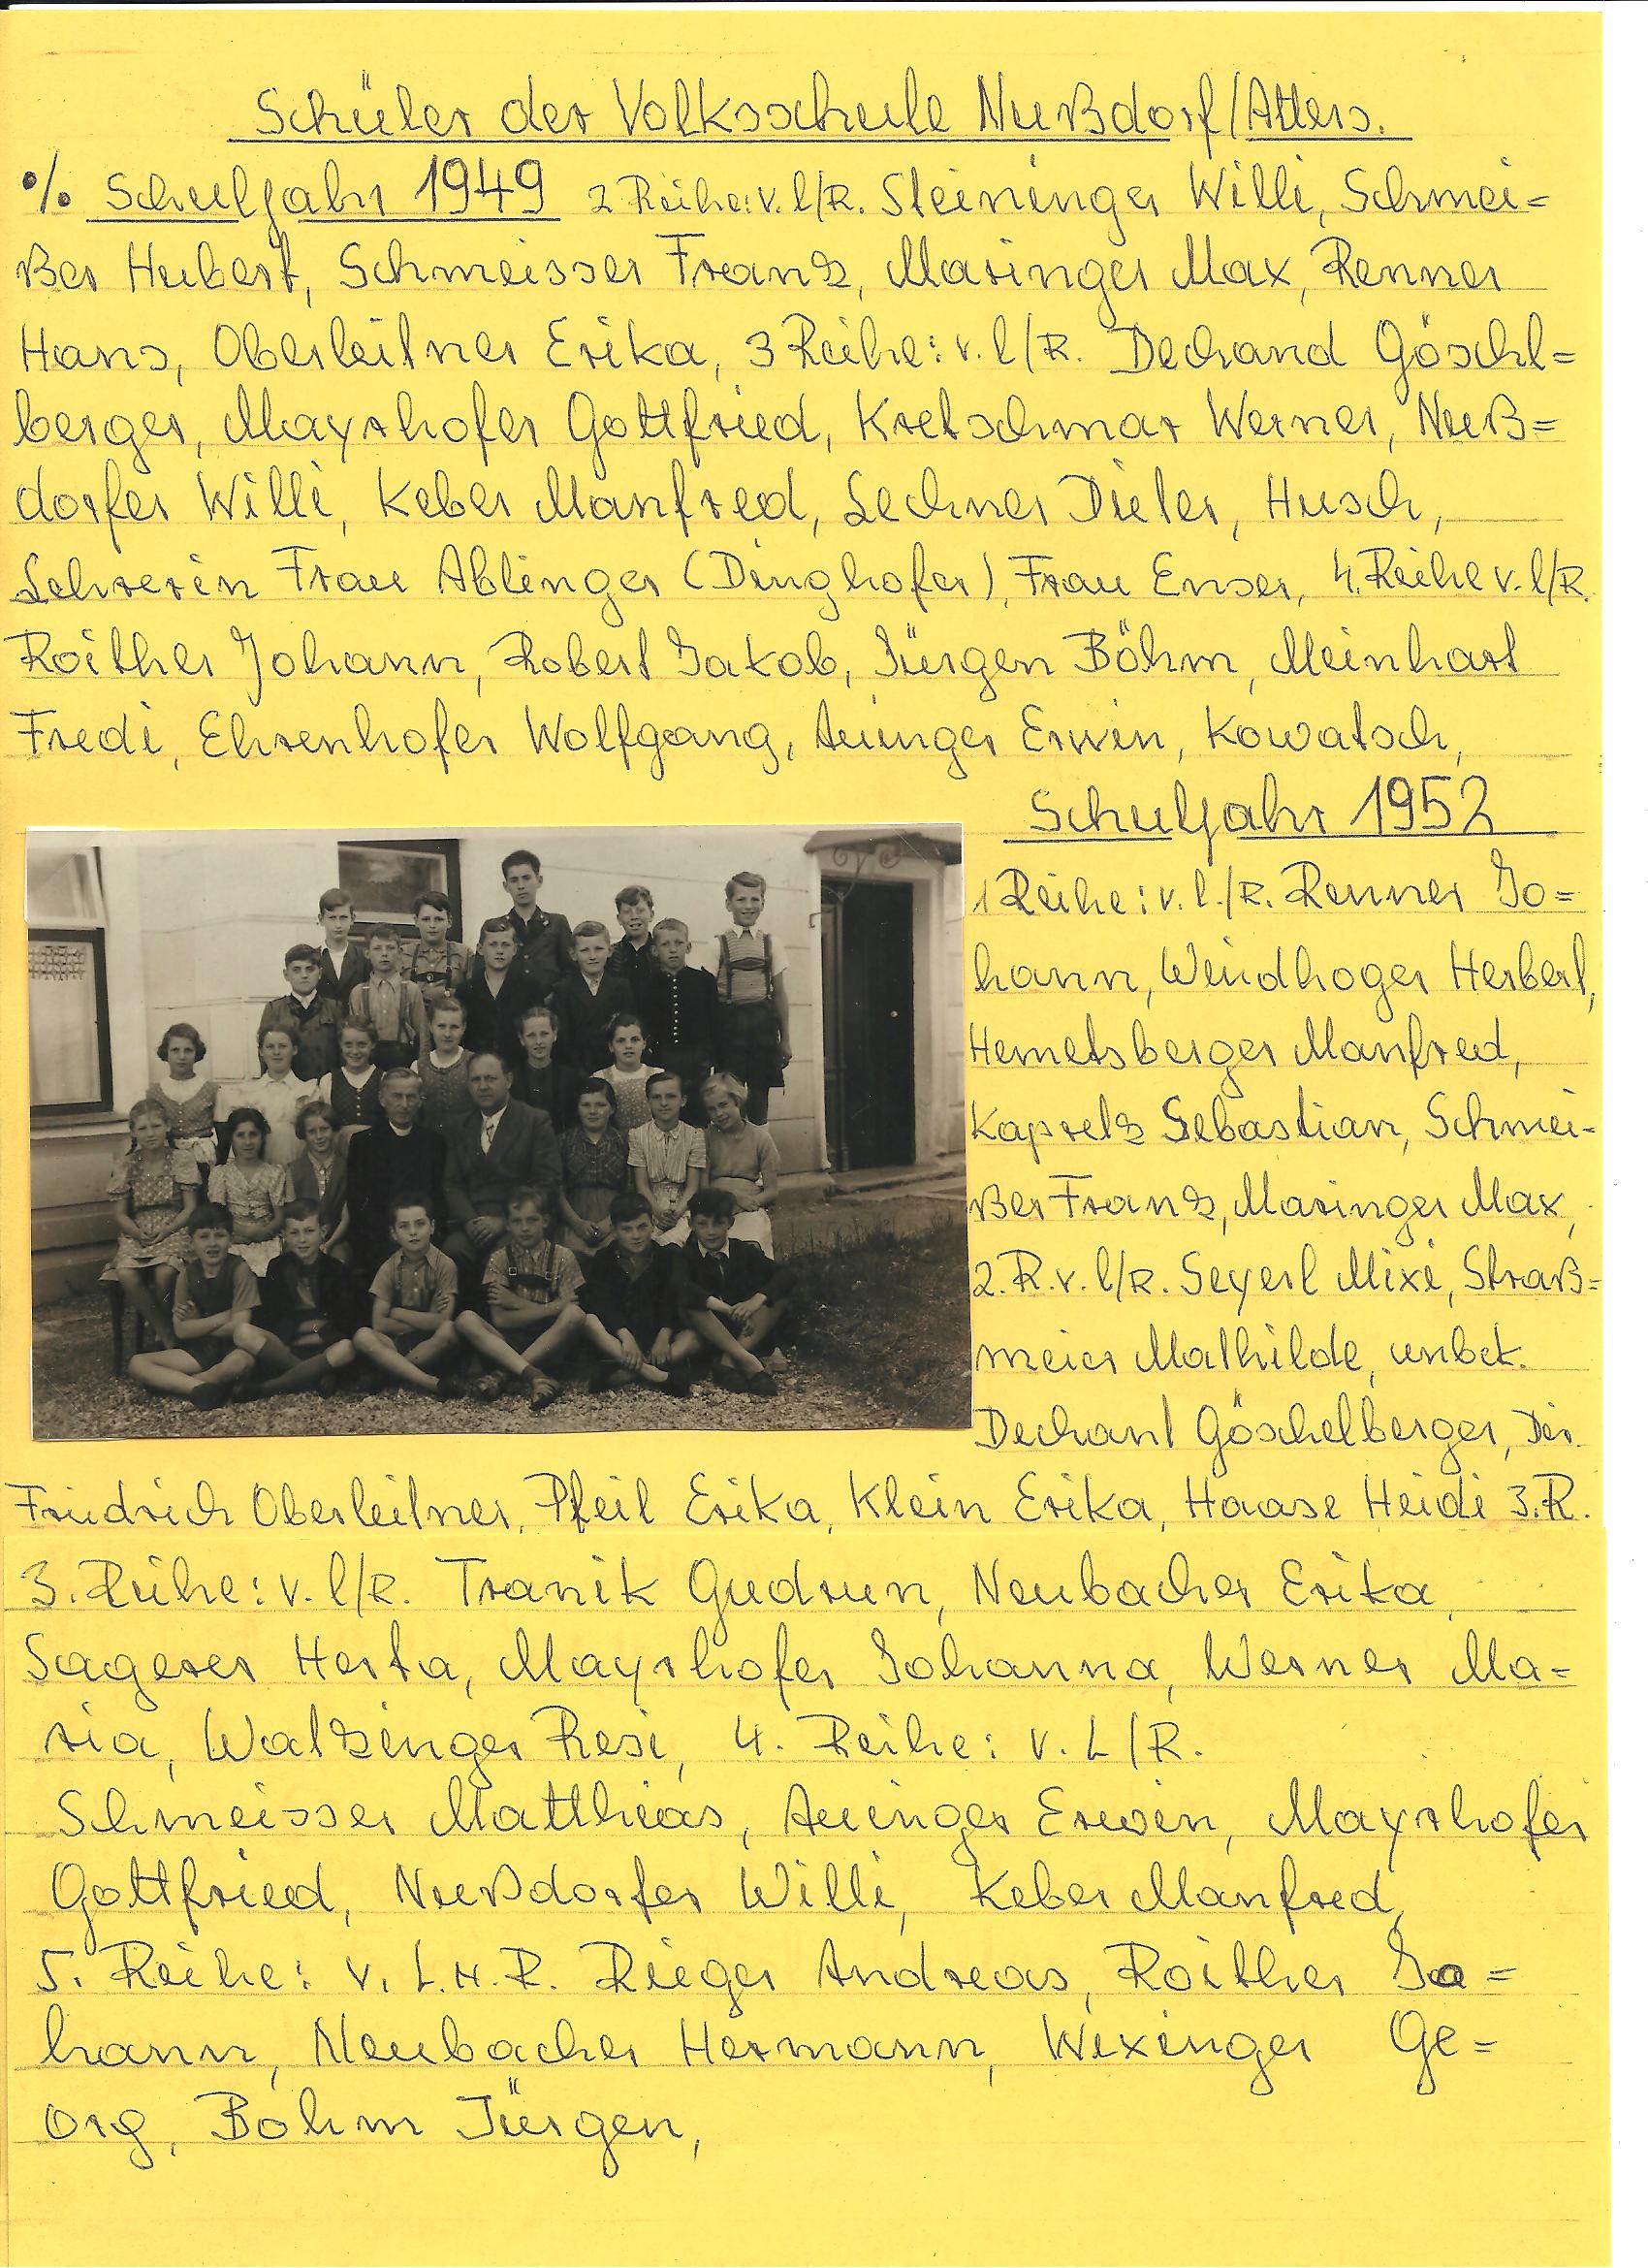 Schüler der Volksschule Nußdorf/Atters.
% Schuljahr 1949 2 Reihe: v. l/R. Steininger Willi, Schmei=
ßer Hubert, Schmeisser Franz, Maringer Max, Renner
Hans, Oberleitner Erika, 3 Reihe: v. l/R. Dechand Göschl=
berger, Mayrhofer Gottfried, Kretschmar Werner, Nuß=
dorfer Willi, Keber Manfred, Lechner Dieter, Husch,
Lehrerin Frau Ablinger (Dinghofer), Frau Enser, 4. Reihe v. l/R.
Roither Johann, Robert Jakob, Jürgen Böhm, Meinhart
Fredi, Ehrenhofer Wolfgang, Auinger Erwin, Kowatsch,
Schuljahr 1952
1 Reihe: v. l./R. Renner Jo=
hann, Windhager Herbert,
Hemetsberger Manfred,
Kapretz Sebastian, Schmei-
ßer Franz, Maringer Max,
2. R. v. l/R. Seyerl Mixi, Straß=
meier Mathilde, unbek.
Dechant Göschelberger, Dir.
Friedrich Oberleitner, Pfeil Erika, Klein Erika, Haase Heidi 3. R.
3. Reihe: v. l/R. Tranik Gudrun, Neubacher Erika,
Sagerer Herta, Mayrhofer Johanna, Werner Ma=
ria, Walzinger Resi, 4. Reihe: v. L/R.
Schmeisser Matthias, Auinger Erwin, Mayrhofer
Gottfried, Nußdorfer Willi, Keber Manfred,
5. Reihe: v. L.N.R. Rieger Andreas, Roither Jo=
hann, Neubacher Hermann, Wexinger Ge=
org, Bohm Jürgen,